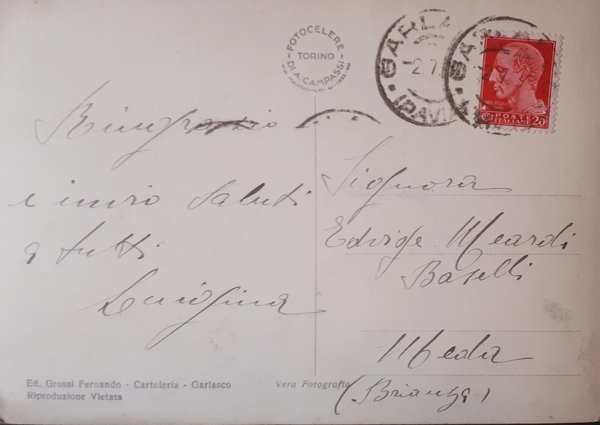 Ringrazio
e invio saluti
a tutti
Luigina
FOTOCELERE
TORINO
DI A. CAMPASSI
GARLA
2.7
(PAVIA
POSTE
ITALIANE
20
Signora
Edvige Meardi
Baselli
Meda
(Brianza)
Ed. Grossi Fernando - Cartoleria - Garlasco
Riproduzione Vietata
Vera Fotografia